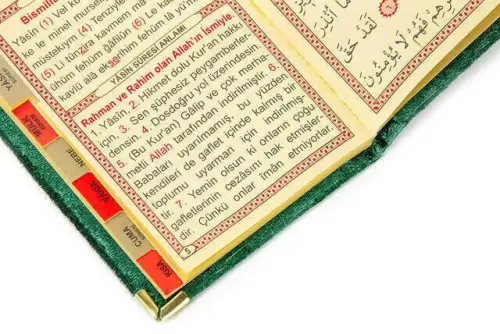 Yâsîn (1) Vel
ke le minel
müstekıym (4)
(5) Li tünzira kavmem
ühüm fehüm gâfilûn (6) Le
kavlü alâ ekserihim fehüm lâ
YÂSÎN SÛRESİ ANLAMI
Rahman ve Rahim olan Allah'ın ismiyle.
1. Yâsîn. 2. Hikmet dolu Kur'an hakkı
için. 3. Sen şüphesiz peygamberler-
densin. 4. Dosdoğru yol üzerindesin.
5. (Bu Kur'an) Galip ve çok merha-
metli Allah tarafından indirilmiştir. 6.
Babaları uyarılmamış, bu yüzden
kendileri de gaflet içinde kalmış bir
toplumu uyarman için indirilmiş-
tir. 7. Yemin olsun ki onların çoğu
gafletlerinin cezasını hak etmişler-
dir. Çünkü onlar îmân etmiyorlar.
5
MÜLK
NEBE
VAKIA
CUMA
KISA
لَقَدْ حَقَّ
فَهُمْ لَا يُؤْمِنُونَ